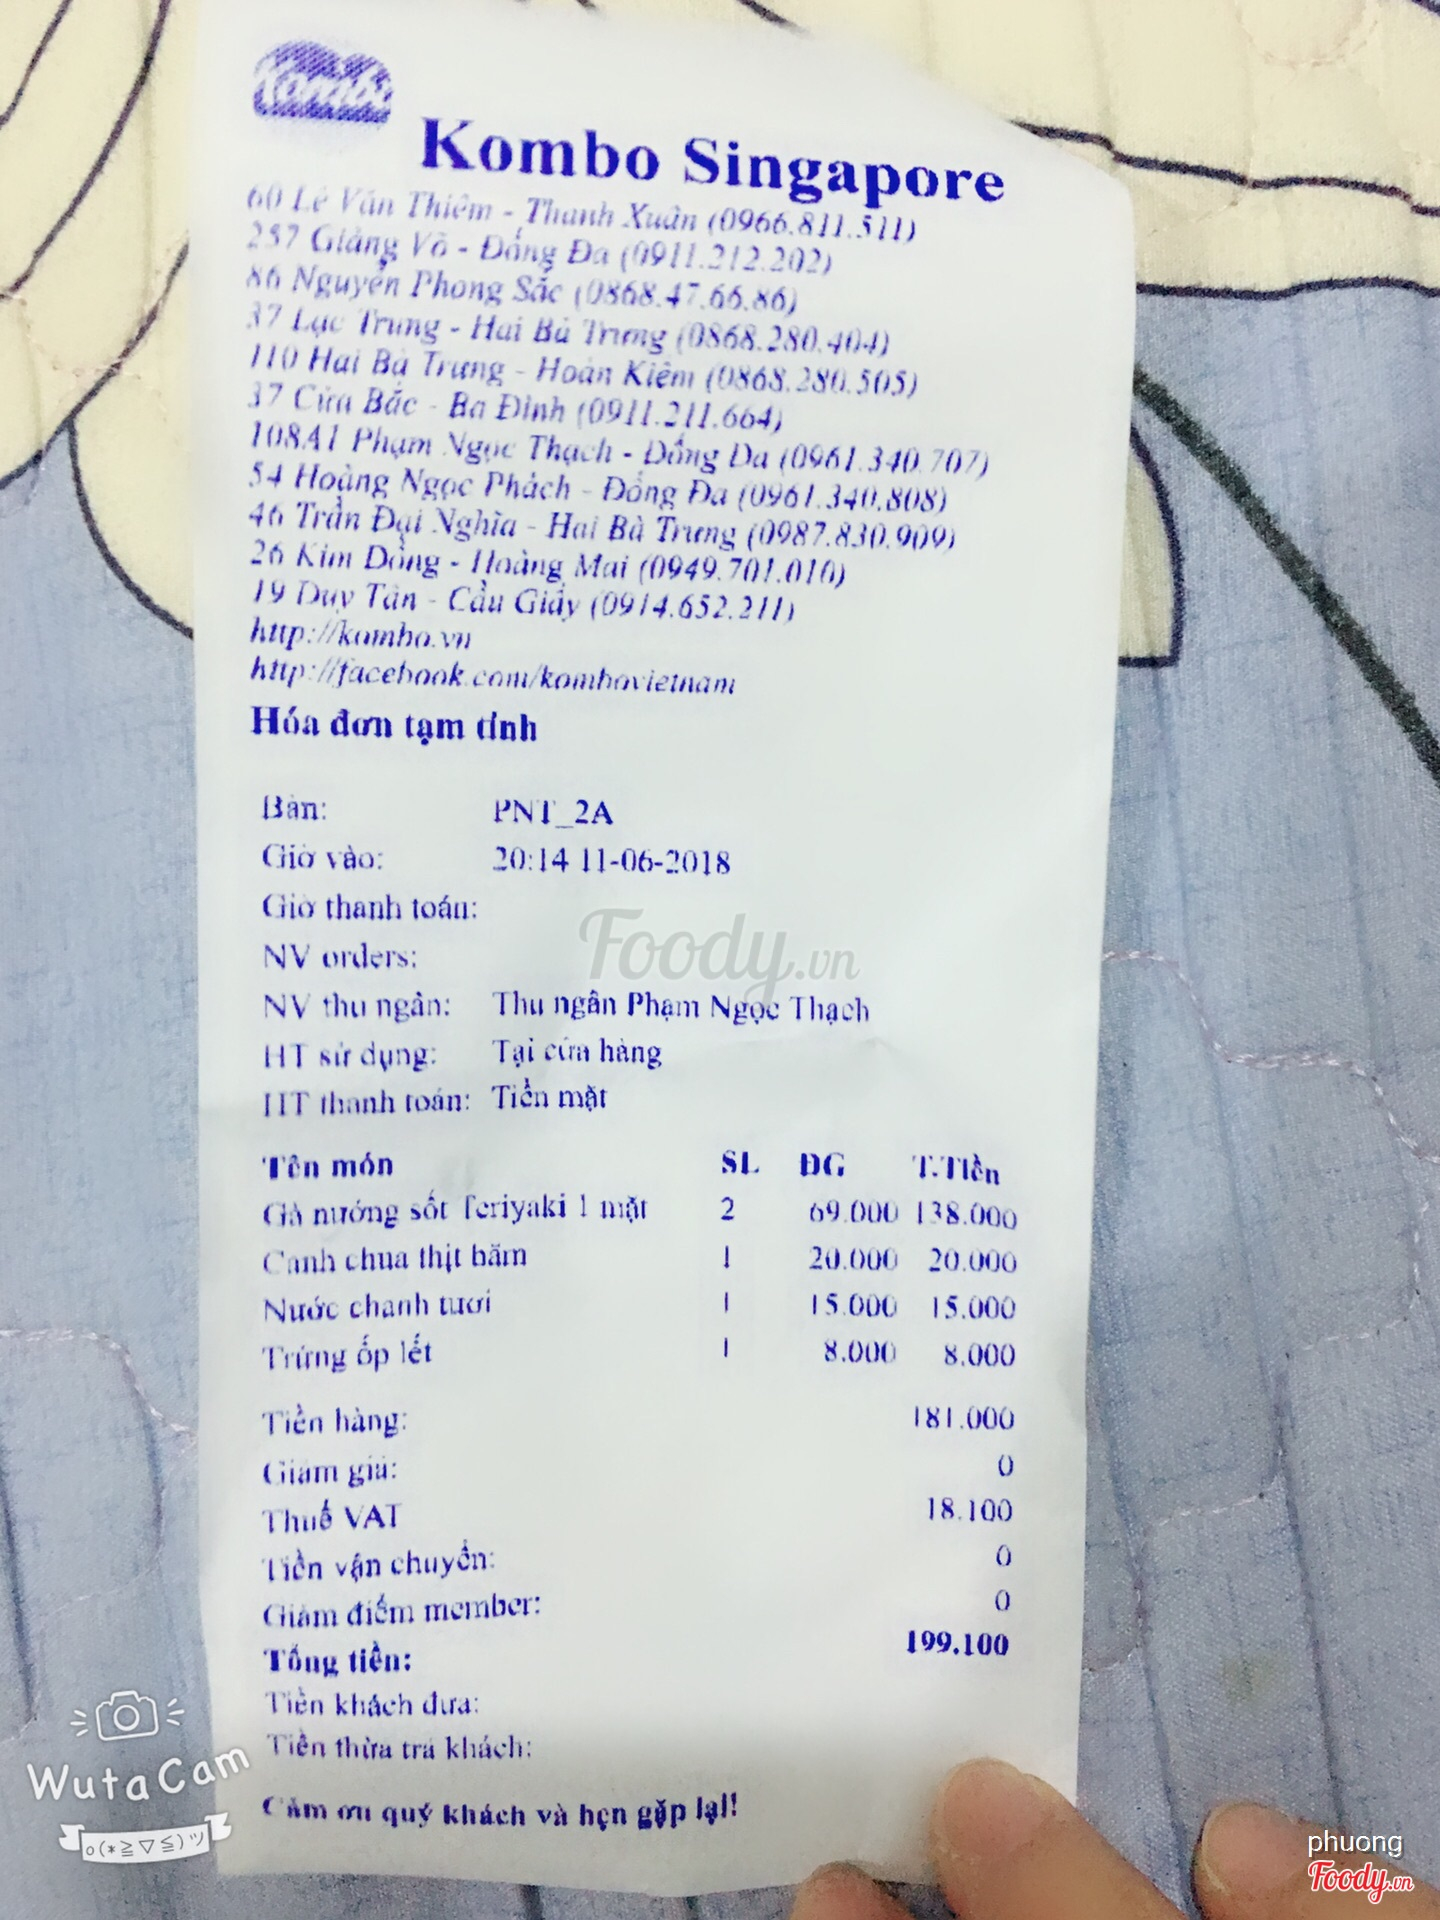 Kombo
Kombo Singapore
60 Lê Văn Thiêm - Thanh Xuân (0966.811.511)
257 Giảng Võ - Đống Đa (0911.212.202)
86 Nguyễn Phong Sắc (0868.47.66.86)
37 Lạc Trung - Hai Bà Trưng (0868.280.404)
110 Hai Bà Trưng - Hoàn Kiếm (0868.280.505)
37 Cửa Bắc - Ba Đình (0911.211.664)
108A1 Phạm Ngọc Thạch - Đống Đa (0961.340.707)
54 Hoàng Ngọc Phách - Đống Đa (0961.340.808)
46 Trần Đại Nghĩa - Hai Bà Trưng (0987.830.909)
26 Kim Đồng - Hoàng Mai (0949.701.010)
19 Duy Tân - Cầu Giấy (0914.652.211)
http://kombo.vn
http://facebook.com/kombovietnam
Hóa đơn tạm tính
Bàn: PNT_2A
Giờ vào: 20:14 11-06-2018
Giờ thanh toán:
NV orders:
NV thu ngân: Thu ngân Phạm Ngọc Thạch
HT sử dụng: Tại cửa hàng
HT thanh toán: Tiền mặt
Tên món SL ĐG T.Tiền
Gà nướng sốt Teriyaki 1 mặt 2 69.000 138.000
Canh chua thịt băm 1 20.000 20.000
Nước chanh tươi 1 15.000 15.000
Trứng ốp lết 1 8.000 8.000
Tiền hàng: 181.000
Giảm giá: 0
Thuế VAT 18.100
Tiền vận chuyển: 0
Giảm điểm member: 0
Tổng tiền: 199.100
Tiền khách đưa:
Tiền thừa trả khách:
Cảm ơn quý khách và hẹn gặp lại!
Foody.vn
WutaCam
o(*≧▽≦)ツ
phuong
Foody.vn